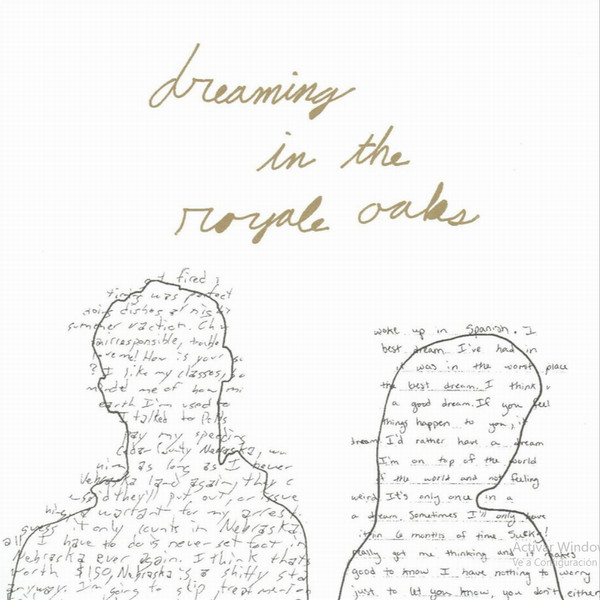 dreaming
in the
royale oaks
fired
was perfect
doing dishes at
summer vaction.
irresponsible,
me! How is your
? I like my classes,
me of how
earth I'm used to
talked to
pay my speeding
Cedar County Nebraska,
him as long as I never
Nebraska land again. they
they'll put out, or issue
a warrant for my arrest.
guess it only counts in Nebraska
all I have to do is never set foot in
Nebraska ever again. I think thats
worth $150, Nebraska is a shitty
anyway. I'm going to
woke up in Spanish. I
best dream I've had in
it was in the worst place
the best dream. I think
a good dream. If you feel
things happen to you,
dream I'd rather have a dream
I'm on top of the world
of the world and not feeling
weird. It's only once in a
a dream. Sometimes I'll only have
6 months of time. Sucks!
really got me thinking and makes
good to know I have nothing to worry
just to let you know, you don't either
Activar Window
Ve a Configuración